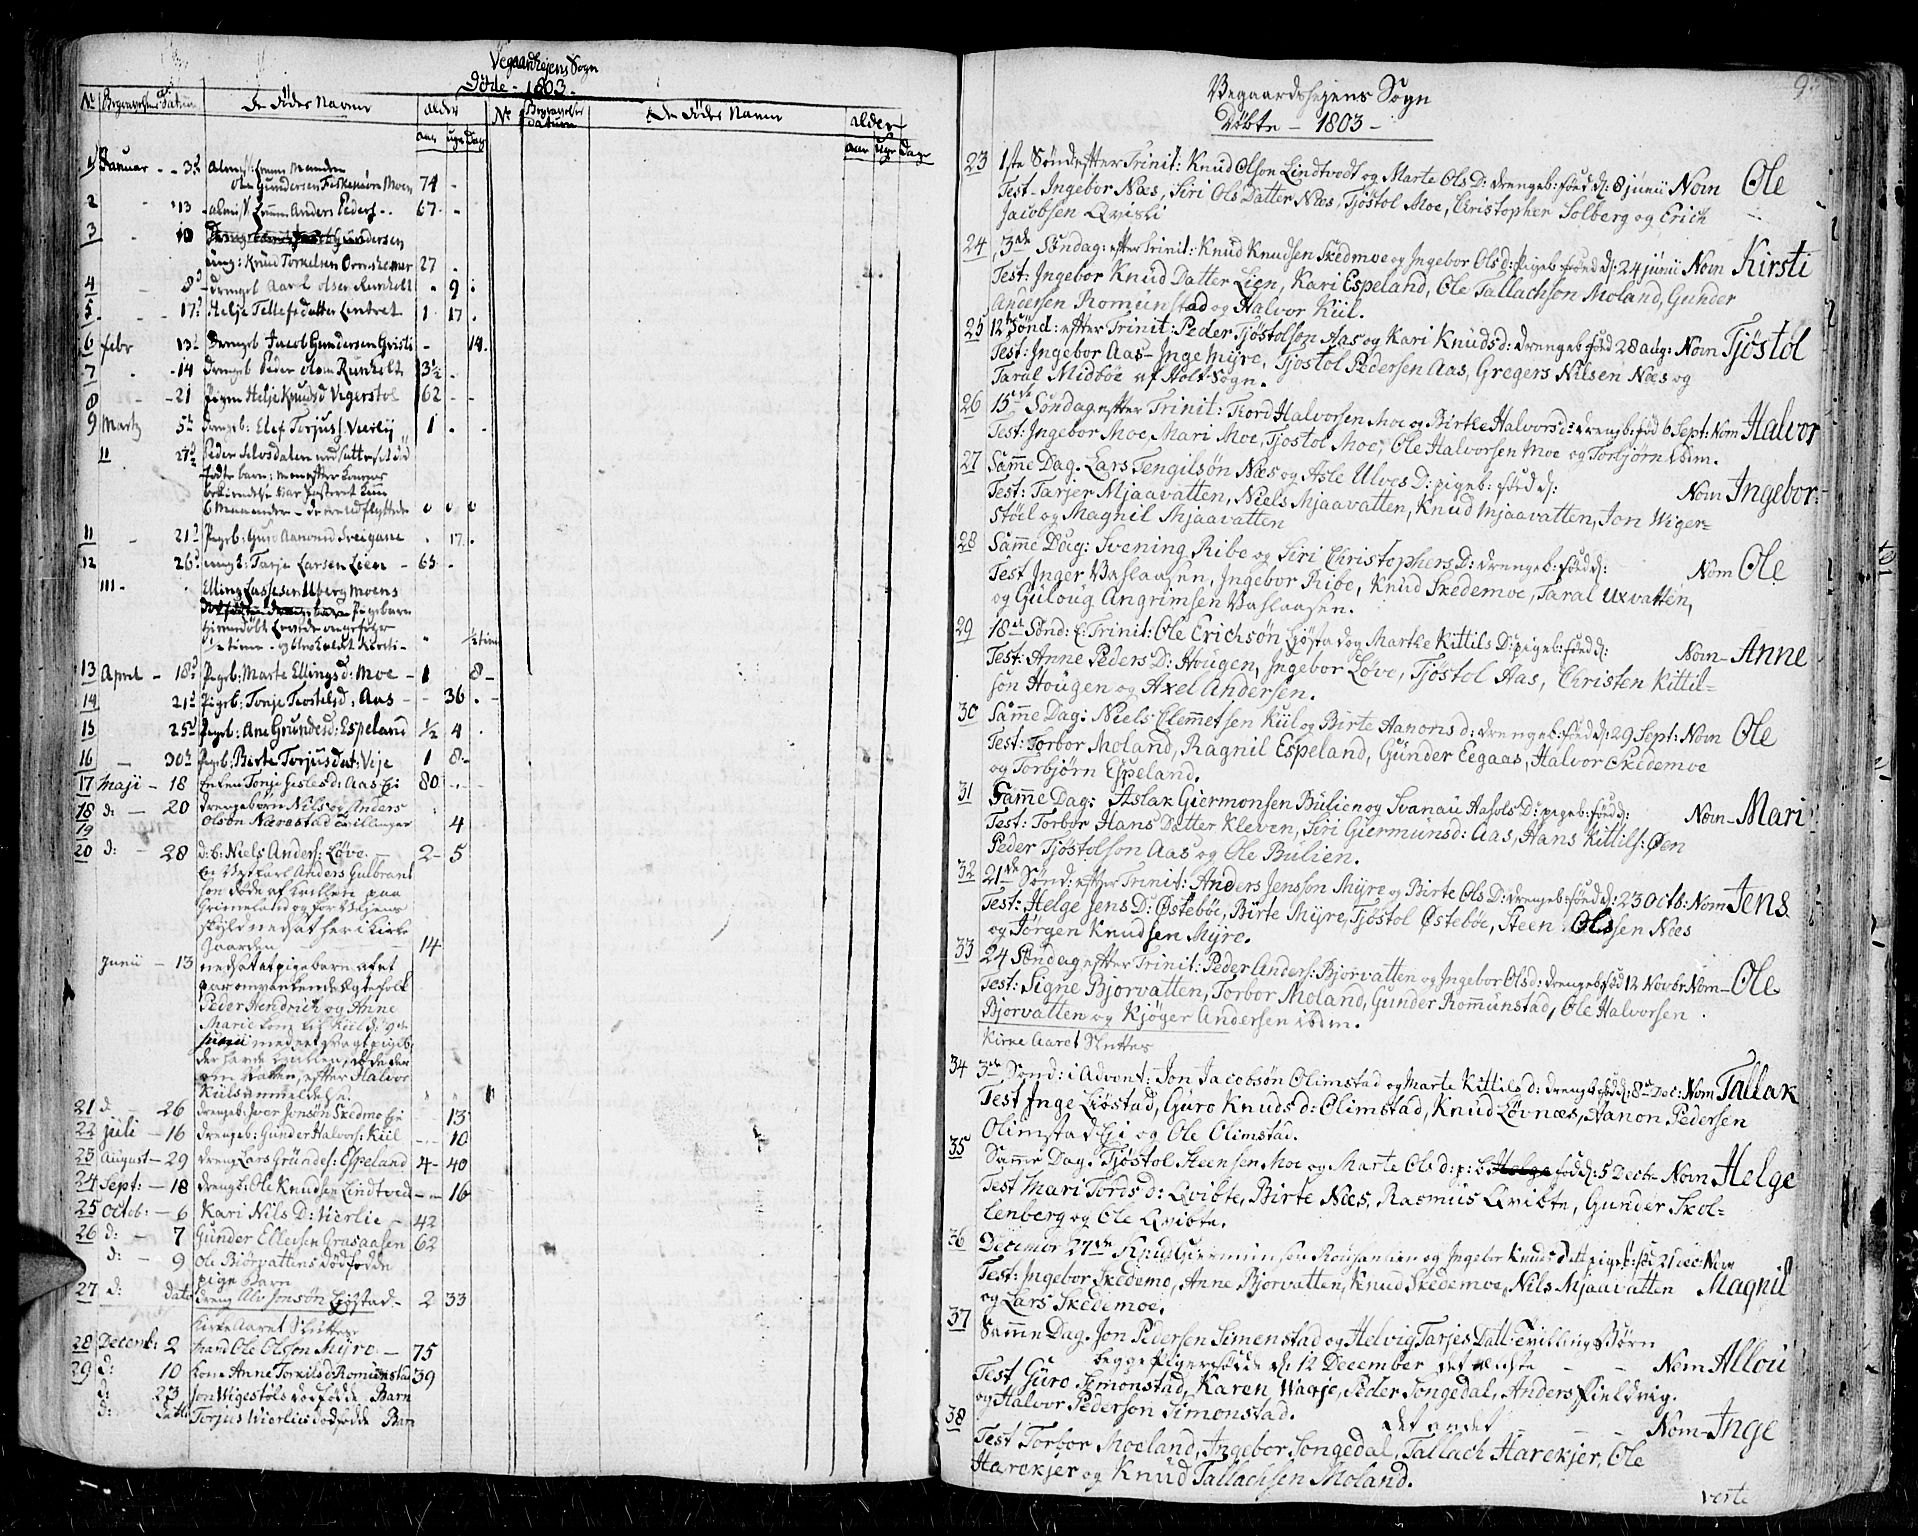 Vegaardshejens Sogn
Døde - 1803 -
No Begravelses Datum De Dødes Navne alder No Begravelses datum De Dødes Navne alder
aar uger Dage aar Uger Dage
1 Januar - 3d Almisl: Lemm Manden
Ole Gundersen Moen 74 -
2 - 13 - almisl: Lemm Anders Peders - 67 - -
3 - 10 Gundersen
ung: Knud Torkelsen 27 -
4 - 8d drengeb Aarel olsen Runholt - 9 -
5 - 17d Helje Tellefsdatter Lintvet 1 17 -
6 febr 13d Drengeb Jacob Gundersen Qristi - - 14
7 - 14 Drengeb Peder Olsen Runholt 3½ -
8 - 21 Pigen Helje Knudsd Vigerstol 62 - -
9 Martz 5d drengeb: Elef Torjus: Vierlij 1 - -
11 27d Peder
fødte barn; men efter konens
bekiendelse var
6 Maaneder - de ere udflyttede 0 0 0
11 - 21d Pigeb: Guro Aanonsd Sveigane - 17 -
12 26d ung k: Tarje Larsen Lien - 65 -
111 - Elling Lassesen Uberg Moens
Pigebarn
hiemedøbt Levede ongefær
½ time - og blev kaldt Kirsti - - ½ time
13 April - 18d Pigeb: Marte Ellingsd: Moe - 1 8 -
14 21d Pigeb: Tonje Tiostelsd: Aas - - 36 -
15 25d Pigeb: Ane Grundesd: Espeland ½ 4 -
16 - 30d Pigeb: Birte Torjusdat: Vije 1 8 -
17 Maji - 18 Enken Tonje Gislesd: Aas Ej 80 - -
18 d: - 20 drengebørn Nils og Anders
19 Olsøn Nærestad tvillinger 4
20 d: - 28 d: b: Niels Anders: Løve 2 - 5
En Anders Gulbrand
søn døde af
Grimeland og for Vejens
skyld nedsat her i Kirke
Gaarden - - 14
Junii - 13 nedsat et pigebarn af et
par omvankende Ægtefolk
Peder Hendrich og Anne
Marie kom til Kiil d: 9de
Junii med et Svagt pigeb:
der havde
om Natten, efter Halvor
Kiils anmeldelse
21 d - 26 drengeb: Iver Jonsøn Skedmo Eje - 13
22 Juli - 16 drengeb: Gunder Halvors: Kiil - - 10
23 August - 29 dreng Lars Gründes: Espeland 4 - 40
24 Sept: - 18 drengb: Ole Knudsen Lindtved - - 16
25 Octob: - 6 Kari Nils D: Vierlie - 42
26 d: - 7 Gunder Ellevsen Grasaasen 62
d: - 9 Ole Biørvattens dødfødde
pige Barn
27 d: dato dreng Alv Jonsøn Liøstad - 2 33
Kirke Aaret Sluttes
28 Decemb: 2 Mand Ole Olsøn Myre - 75
29 d: 10 Kone Anne Torkilsd: Romunstad 39
d: 23 Jon Wigestøls dødfødde Barn
d: datto Torjus Wierlies dødfødde Barn
Vegaardshejens Sogn
Døbte - 1803 -
23 1ste Sønd: efter Trinit: Knud Olson Lindtvedt og Marte Ols D: drengeb: føed d: 8 Junii Nom Ole
Test - Ingebor Næs, Siri Ols Datter Næs, Tjøstol Moe, Christopher Solberg og Erich
Jacobsen Qvisli
24 3de Søndag: efter Trinit: Knud Knudsen Skedmoe og Ingebor Olsd: Pigeb: føed d: 24 junii Nom Kirsti
Test: Ingebor Knud Datter Lien, Kari Espeland, Ole Tallachson Moland, Gunder
Andersen Romunstad og Halvor Kiil.
25 12te Sønd: efter Trinit: Peder Tjøstolson Aas og Kari Knudsd: drengeb føed 28 aug: Nom Tjøstol
Test: Ingebor Aas - Inge Myre, Tjøstol Pedersen Aas, Gregers Nilsen Næs og
Taral Midbøe af Holt Sogn.
26 15de Søndag efter Trinit: Tord Halvorsen Moe og Birke Halvorsd: drengeb: fød 6 Sept: Nom Halvor
Test: Ingebor Moe, Mari Moe, Tjøstol Moe, Ole Halvorsen Moe og Torbjørn ibdm.
27 Samme Dag. Lars Tengilsøn Næs og Asle Ulves D: pigeb: føed d: Nom Ingebor
Test: Tarjer Mjaavatten, Niels Mjaavatten, Knud Mjaavatten, Jon Wiger=
støel og Magnil Mjaavatten
28 Samme Dag: Svening Ribe og Siri Christophers D: drengeb: føed d: Nom Ole
Test Inger Vaslaasen, Ingebor Ribe, Knud Skedemoe, Taral Uxvatten,
og Guloug Angrimsen Vaslaasen.
29 18de Sønd: E: Trinit: Ole Erichsøn Liøstad og Marthe Kittils D: pigeb: føed d: Nom - Anne
Test: Anne Peders D: Hougen, Ingebor Løve, Tjøstol Aas, Christen Kittil=
søn Hougen og Axel Andersen.
30 Samme Dag: Niels Clemmetsen Kiil og Birte Aanonsd: drengeb føed d: 29 Sept: Nom Ole
Test: Torbor Moland, Ragnil Espeland, Gunder Eegaas, Halvor Skedemoe
og Torbjørn Espeland.
31 Samme Dag: Aslak Giermonsen Bulien og Svanau Aasols D: pigeb: føed d: Nom - Mari
Test: Torbor Hans Datter Kleven, Siri Giermunsd: Aas, Hans Kittils: Øen
Peder Tjøstolson Aas og Ole Bulien.
32 21de Sønd: efter Trinit: Anders Jensson Myre og Birte Ols D: drengeb: føed d: 23 Octb: Nom Jens
Test: Helge Jens D: Østebøe, Birte Myre, Tjøstol Østebøe, Steen Olssen Næs
og Jørgen Knudsen Myre.
33 24 Søndag efter Trinit: Peder Anders: Bjorvatten og Ingebor Olsd: drengeb fød 12 Novbr Nom - Ole
Test: Signe Bjorvatten, Torbor Moland, Gunder Romunstad, Ole Halvorsen
Bjorvatten og Kjøger Andersen ibdm.
Kirke Aaret Sluttes
34 3de Sond: i Advent: Jon Jacobsøn Olimstad og Marte Kittils d: drengeb fød d: 8de Dec: Nom Tallak
Test Inge Liøstad, Guro Knuds d: Olimstad, Knud Løvnæs, Aanon Pedersen
Olimstad Eji og Ole Olimstad.
35 Samme Dag. Tjøstol Steensen Moe og Marte Olsd: p: b: Helge fød d: 5 Decbr Nom Helge
Test Mari Tords d: Qvibte, Birte Næs, Rasmus Qvibte, Gunder Skol=
lenberg og Ole Qvibte.
36 Decembr 27de Knud Giermunsen og Ingebor Knuds Datt pigeb: fød 21 dec: Nom
Test: Ingebor Skedemo, Anne Bjorvatten, Knud Skedemoe, Nils Mjaavatten Magnil
og Lars Skedemoe.
37 Samme Dag. Jon Pedersen Simenstad og Helvig Tarjes Datt: Tvillings Børn
begge piger fødde d: 12 December det ældste - - Nom Allou
Test Guro Simonstad, Karen Waaje, Peder Songedal, Anders Fieldvig.
og Halvor Pederson Simonstad.
38 det andet - - Nom - Inge
Test Torbor Moeland, Ingebor Songedal, Tallach Harekjer, Ole
Harekjer og Knud Tallachsen Moland.
verte